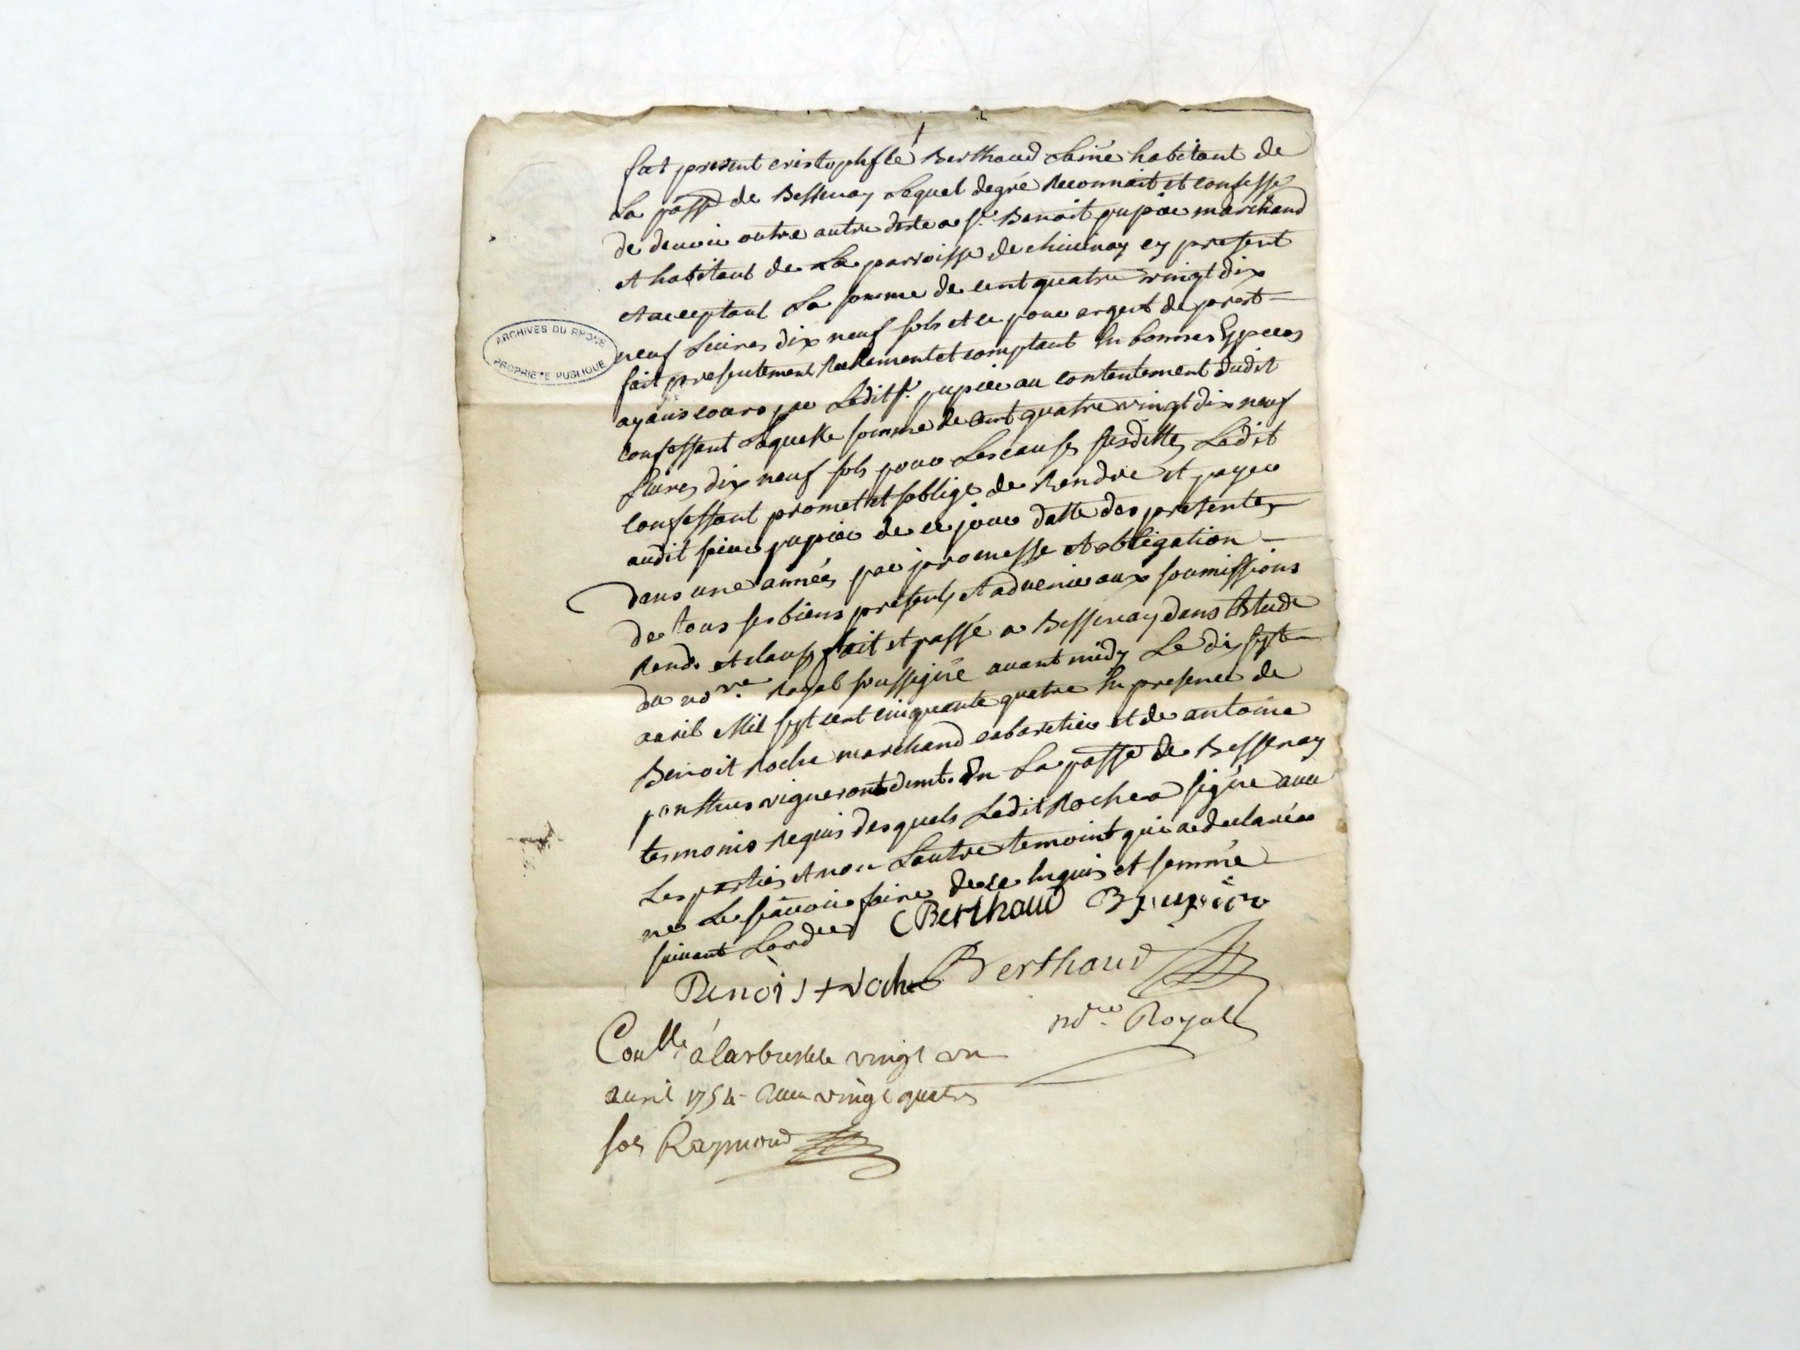 fut present cristophfle Berthaud Lainé habitant de
La passe de Bessenay Lequel degré Reconnait et confesse
de devoir outre autre dete a sr. Benoit pupier marchand
et habitant de La parroisse de chivinay cy present
et acceptant La somme de cent quatre vingt dix
neuf Livres dix neuf sols et ce pour argent de prest
fait presentement Reellement et comptant En bonnes Especes
ayans cours par Ledit sr. pupier au contentement dudit
confessant Laquelle somme de cent quatre vingt dix neuf
Livres dix neuf sols pour Les causes susdittes Ledit
confessant promet et soblige de Rendre et payer
audit sieur pupier de ce jour datte des presentes
dans une année, par promesse et obligation
de tous ses biens presents et advenir aux soumissions
Rend. et claus, fait et passé a Bessenay dans Etude
du nore. Royal soussigné avant midy Le dix sept
avril Mil sept cent cinquante quatre En presence de
Benoit Roche marchand cabaretier et de antoine
ponthus vigneron demt. En La passe de Bessenay
tesmoins Requis desquels Ledit Roche a signé avec
Les parties et non Lautre temoint qui a declaré
ne Le sçavoir faire de ce Enquis et sommé
suivant Lordre Berthaud B pupier
Benoist Roche Berthaud
nore. Royal
Conllé à larbresle vingt un
avril 1754 Reçu vingt quatre
sols Raymond
ARCHIVES DU RHONE
PROPRIETE PUBLIQUE